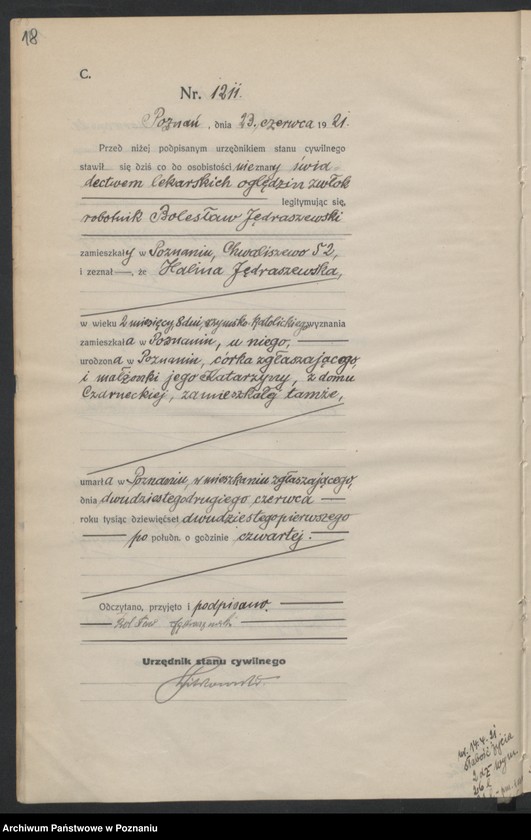 18
C.
Nr. 1211.
Poznań, dnia 23. czerwca 1921.
Przed niżej podpisanym urzędnikiem stanu cywilnego
stawił się dziś co do osobistości nieznany świa-
dectwem lekarskich oględzin zwłok
legitymując się,
robotnik Bolesław Jędraszewski
zamieszkały w Poznaniu, Chwaliszewo 52,
i zeznał —, że Halina Jędraszewska,
w wieku 2 miesięcy, 8 dni, rzymsko-katolickiego wyznania
zamieszkała w Poznaniu, u niego,
urodzona w Poznaniu, córka zgłaszającego,
i małżonki jego Katarzyny, z domu
Czarneckiej, zamieszkałej tamże,
umarła w Poznaniu, w mieszkaniu zgłaszającego,
dnia dwudziestegodrugiego czerwca
roku tysiąc dziewięćset dwudziestegopierwszego
po połudn. o godzinie czwartej.
Odczytano, przyjęto i podpisano.
Urzędnik stanu cywilnego
ur. 14.4.21
słabość życia
Archiwum Państwowe w Poznaniu